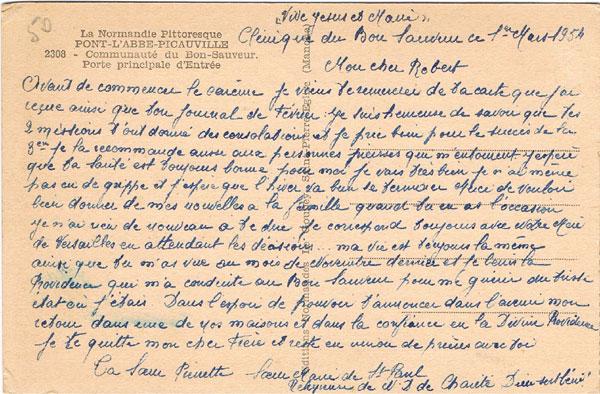 50
La Normandie Pittoresque
PONT-L'ABBE-PICAUVILLE
2308 - Communauté du Bon-Sauveur.
Porte principale d'Entrée
Vive Jesus et Marie
Clinique du Bon Sauveur ce 1er Mars 1954
Mon cher Robert
Avant de commencer le carême je viens te remercier de ta carte que j'ai
reçue ainsi que ton journal de Février. Je suis heureuse de savoir que tes
2 missions t'ont donné des consolations et je prie bien pour le succès de la
3em je la recommande aussi aux personnes pieuses qui m'entourent j'espère
que ta santé est toujours bonne pour moi je vais très bien je n'ai même
pas eu de grippe et j'espère que l'hiver va bien se terminer Merci de vouloir
bien donner de mes nouvelles à la famille quand tu en as l'occasion
je n'ai rien de nouveau à te dire je correspond toujours avec Notre Mère
de Versailles en attendant les décisions... ma vie est toujours la même
ainsi que tu m'as vue au mois de Novembre dernier et je bénis la
Providence qui m'a conduite au Bon Sauveur pour me guérir du triste
état où j'étais. Dans l'espoir de pouvoir t'annoncer dans l'avenir mon
retour dans une de nos maisons et dans la confiance en la Divine Providence
je te quitte mon cher Frère et reste en union de prières avec toi
Ta Sœur Pierrette Sœur Marie de St Paul
Religieuse de N. D. de Charité Dieu soit béni